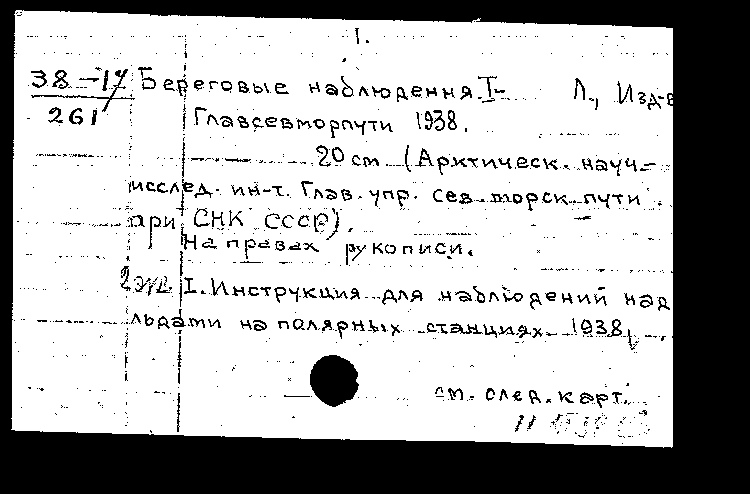 1.
38-17 Береговые наблюдения I- Л., Изд-в
261 Главсевморпути 1938.
20 cm (Арктическ. науч.-
исслед. ин-т. Глав. упр. сев. морск. пути
при СНК СССР).
На правах рукописи.
2 экз I. Инструкция для наблюдений над
льдами на полярных станциях. 1938,
см. след. карт.